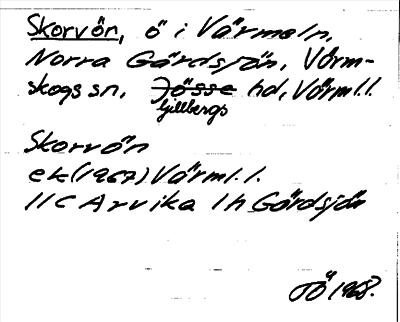 Skorvön, ö i Värmeln,
Norra Gärdsjön, Värm-
skogs sn, Jösse hd, Värml.l.
Gillbergs
Skorvön
ek (1967) Värml.l.
11C Arvika 1h Gärdsjön
OÖ 1968.